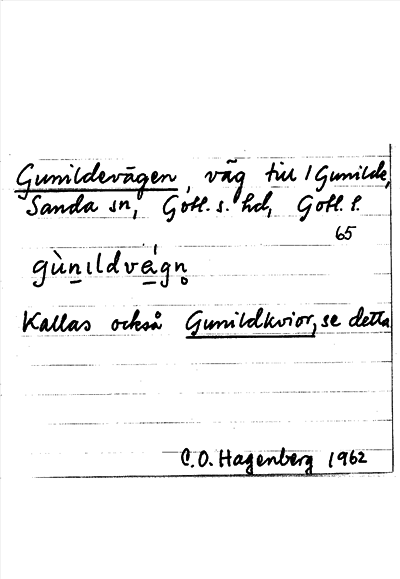 Gunildevägen, väg till / Gunilde,
Sanda sn, Gotl. s. hd, Gotl. l.
65
gùnıldvágn̥
Kallas också Gunildkvior, se detta
C.O. Hagenberg 1962